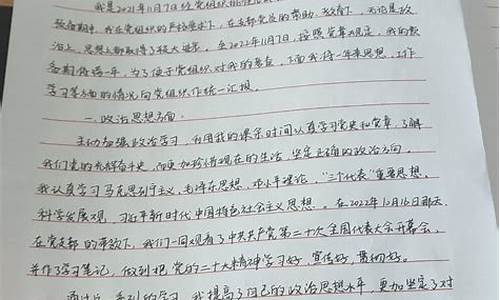 我是2021年11月7日经党组织批准
预备期中,我在党组织的严格要求下,在支部党员的帮助、教育下,无论是政
治上、思想上都取得了较大进步。至2022年11月7日,按照党章规定,我的预
备期将满一年,为了便于党组织对我的考查,下面我将一年来思想、工作
学习等方面的情况向党组织作统一汇报。
一、政治思想方面
主动加强政治学习,利用我的课余时间认真学习党史和党章,了解
我们党的光辉奋斗史,从而更加珍惜现在的生活,坚定正确的政治方向。
我认真学习马克思列宁主义、毛泽东思想、邓小平理论、“三个代表”重要思想、
科学发展观、习近平新时代中国特色社会主义思想。在2022年10月16日那天,
在党支部的带领下,我们一同观看了中共共产党第二十次全国代表大会开幕会,
并作了学习笔记,做到把党的二十大精神学习好、宣传好、贯彻好。
通过这一系列的学习,我提高了自己的政治思想水平,更加坚定了对